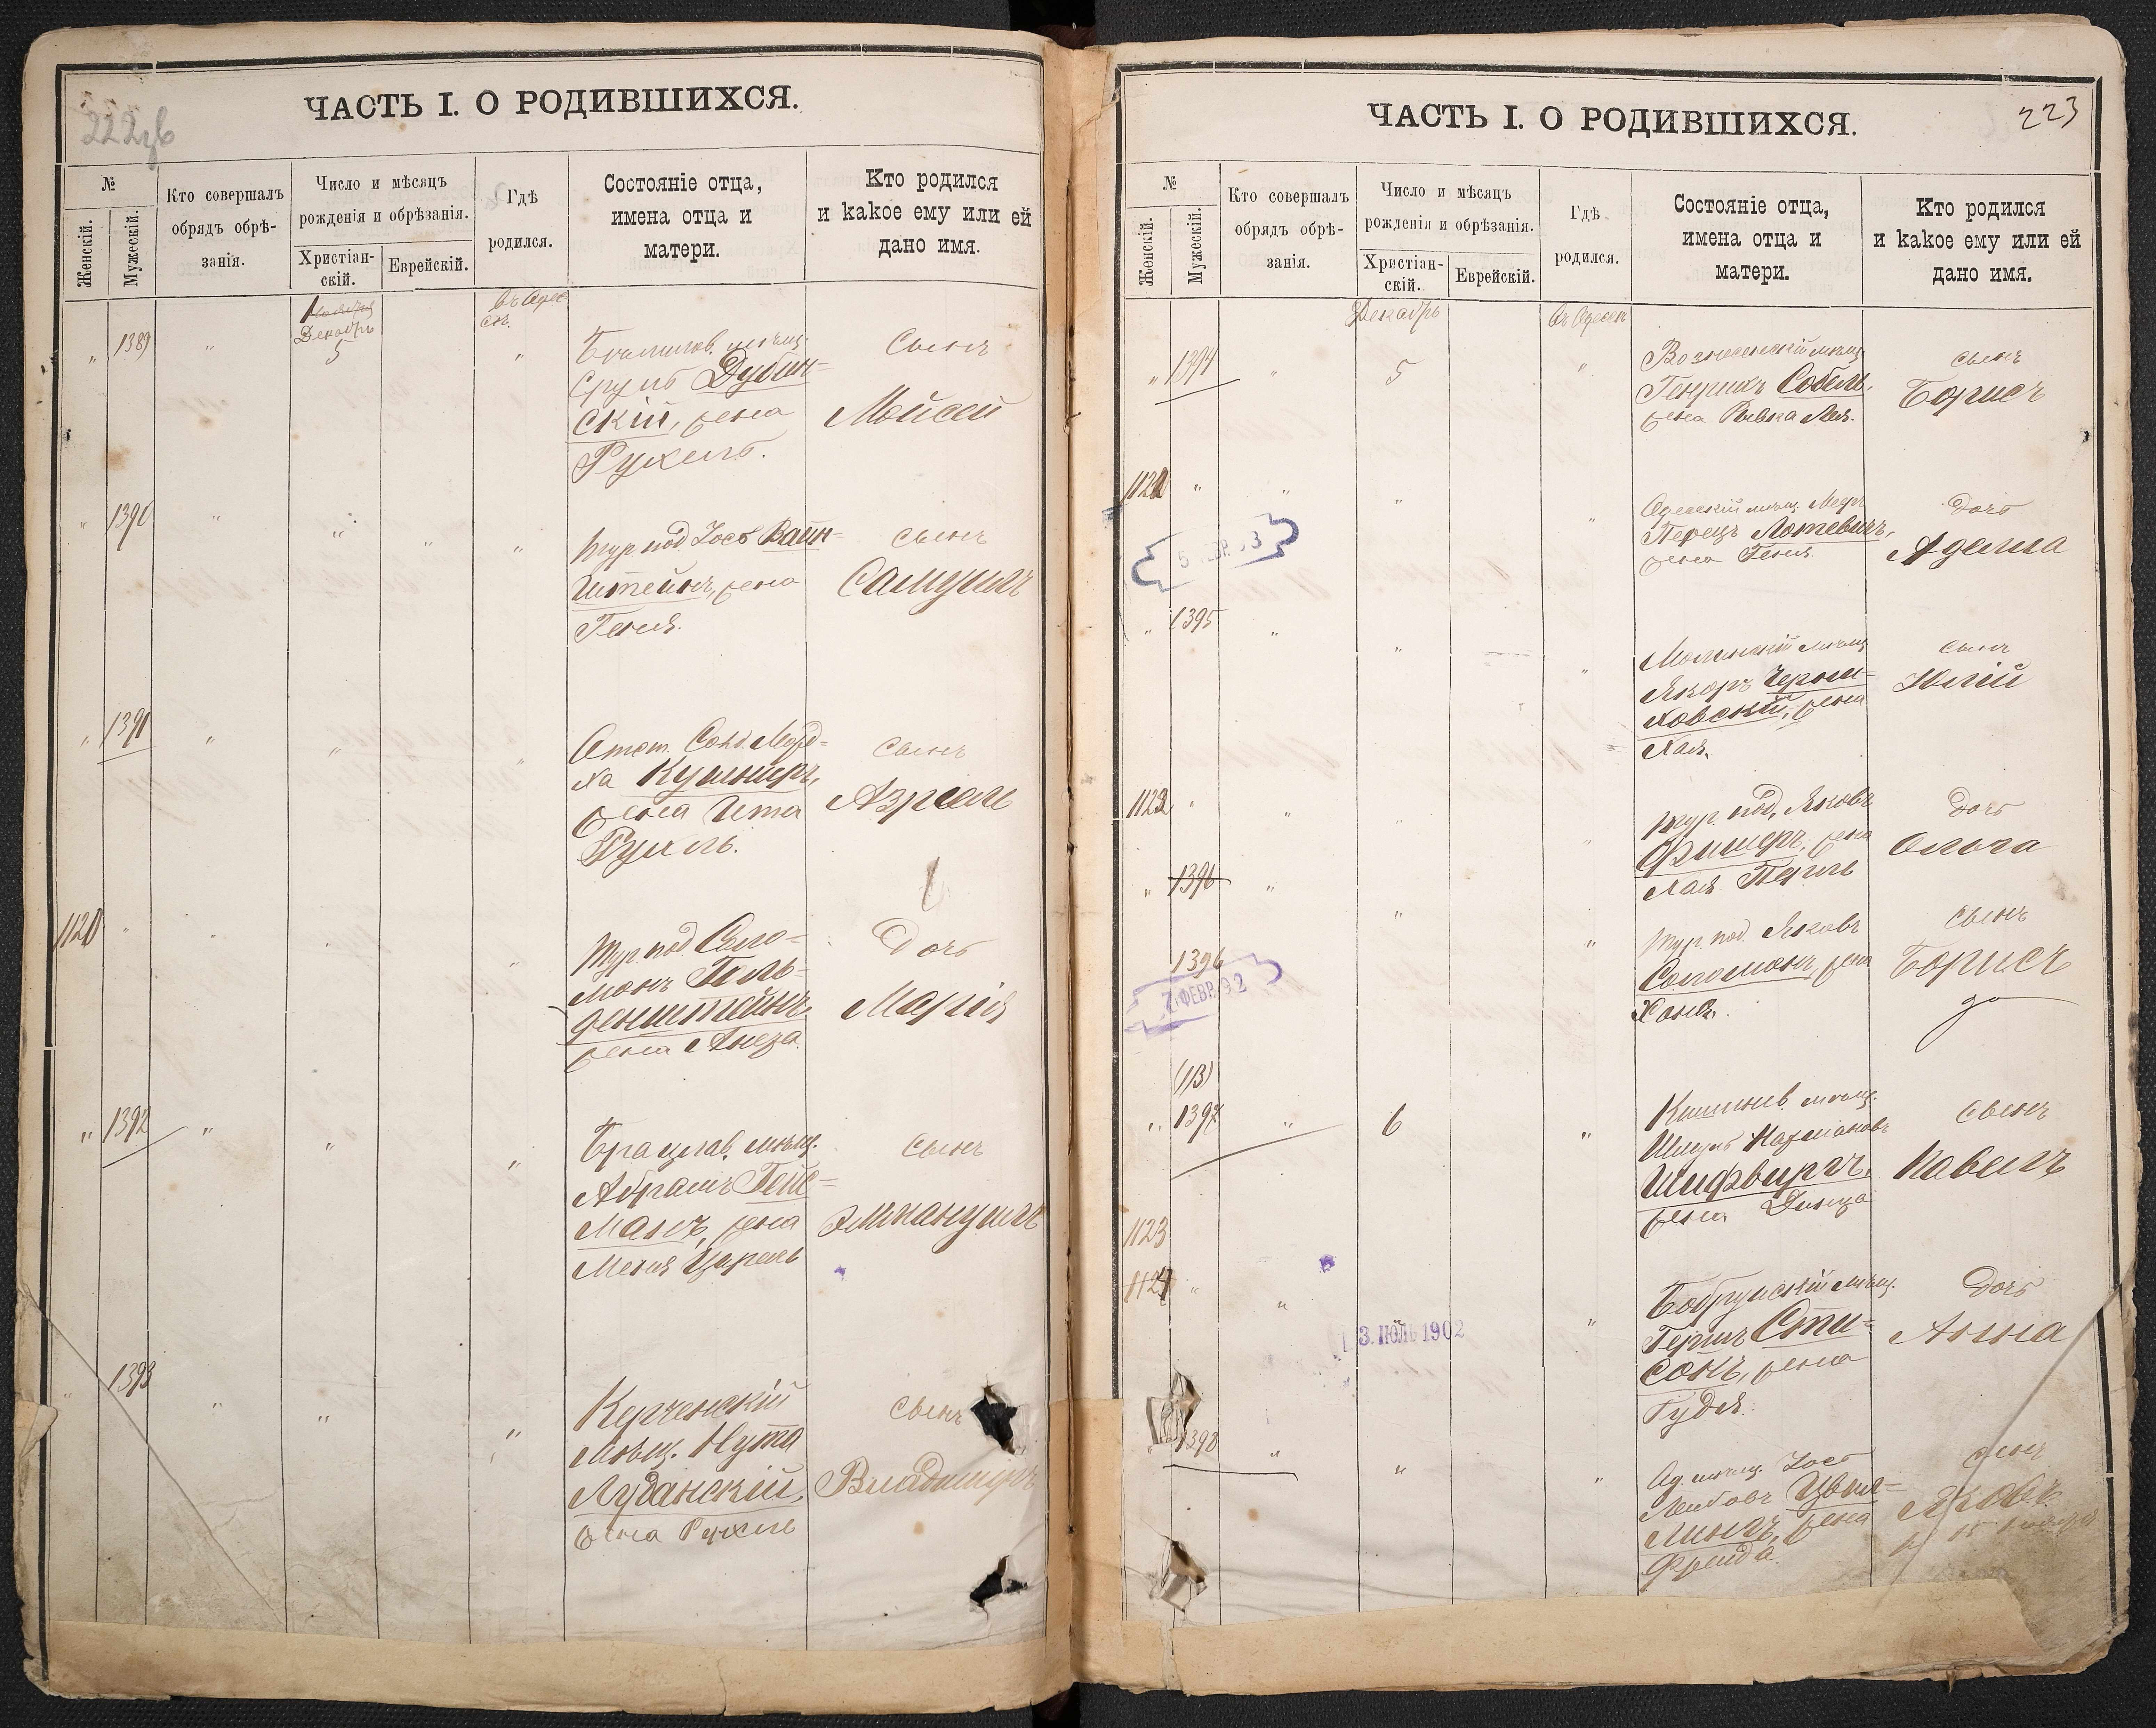 222об
ЧАСТЬ I. О РОДИВШИХСЯ.
№
Женскій.
Мужескій.
Кто совершалъ
обрядъ обрѣ-
занія.
Число и мѣсяцъ
рожденія и обрѣзанія.
Христіан-
скій.
Еврейскій.
Гдѣ
родился.
Состояніе отца,
имена отца и
матери.
Кто родился
и какое ему или ей
дано имя.
Декабрь
въ Одес
сѣ.
" 1389 " 5 "
Срулъ Дубин=
скій, жена
Рухель.
Сынъ
Мойсей
" 1390 " " " "
Тур. под. Іось Вайн=
штейнъ, жена
Геня.
Сынъ
Самуилъ
" 1391 " " "
Отст. Солд. Морд=
ха Кушниръ,
жена Ита
Рухль.
Сынъ
Азріель
1120 " " " "
Тур. под. Соло=
монъ Голь=
денштейнъ,
жена
Дочь
Марія
" 1392 " " "
Брацлав. мѣщ.
Абрамъ Гойс=
манъ, жена
Меня Цирель
Сынъ
Эммануилъ
" 1393 " " "
Керченскій
мѣщ. Нута
Луганскій,
жена Рухель
Сынъ
Владимиръ
223
ЧАСТЬ I. О РОДИВШИХСЯ.
№
Женскій.
Мужескій.
Кто совершалъ
обрядъ обрѣ-
занія.
Число и мѣсяцъ
рожденія и обрѣзанія.
Христіан-
скій.
Еврейскій.
Гдѣ
родился.
Состояніе отца,
имена отца и
матери.
Кто родился
и какое ему или ей
дано имя.
Декабрь
въ Одессѣ
" 1394 " 5 "
Вознесенскій мѣщ.
Генрихъ Собель,
жена Ривка Лея.
Сынъ
Борисъ
1121 " " " "
Одесскій мѣщ.
Перецъ Лотевичъ,
жена Геня.
Дочь
Аделя
" 1395 " " "
мѣщ.
Черни=
ховскій, жена
Хая.
Сынъ
Юлій
1122 " " " "
Тур. под. Яковъ
Фишеръ, жена
Хая Перль
Дочь
Ольга
" 1396 " " "
1396
7 ФЕВР. 92
Тур. под. Яковъ
Соломонъ, жена
Хана.
Сынъ
Борисъ
(113)
" 1397 " 6 "
Кишинев. мѣщ.
Шмуль
Шифвиргъ,
жена Динца
Сынъ
Павелъ
1123
1124 " " "
3. ІЮЛЬ 1902
Бобруйскій мѣщ.
Гершъ Сти=
сонъ, жена
Гудя.
Дочь
Анна
" 1398 " " "
Од. мѣщ. Іось
Лейбовъ Цвил=
лингъ, жена
Фрейда.
Сынъ
Яковъ